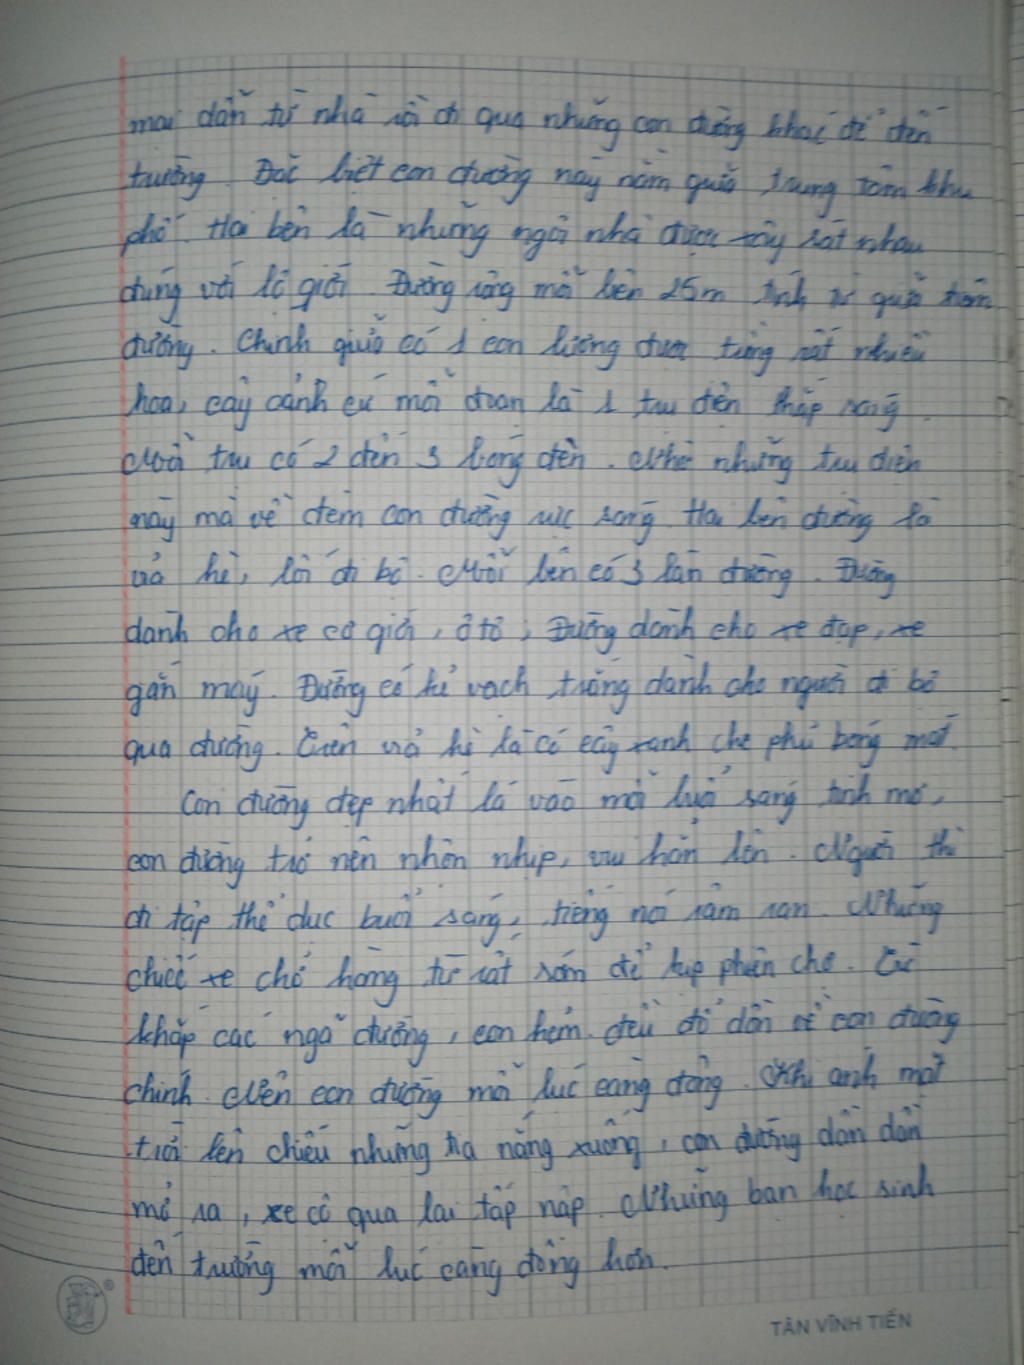 mai dẫn từ nhà rồi đi qua những con đường khác để đến
trường. Đặc biệt con đường này nằm giữa trung tâm khu
phố. Hai bên là những ngôi nhà được xây sát nhau
đúng với lộ giới. Đường rộng mỗi bên 25m tính từ giữa tim
đường. Chính giữa có 1 con lươn được trồng rất nhiều
hoa, cây cảnh cứ mỗi đoạn là 1 trụ đèn thắp sáng.
Mỗi trụ có 2 đến 3 bóng đèn. Nhờ những trụ điện
này mà về đêm con đường rực sáng. Hai bên đường là
vỉa hè, lối đi bộ. Mỗi bên có 3 làn đường. Đường
dành cho xe cơ giới, ô tô, Đường dành cho xe đạp, xe
gắn máy. Đường có kẻ vạch trắng dành cho người đi bộ
qua đường. Trên vỉa hè là có cây xanh che phủ bóng mát.
Con đường đẹp nhất là vào mỗi buổi sáng tinh mơ,
con đường trở nên nhộn nhịp, vui hẳn lên. Người thì
đi tập thể dục buổi sáng, tiếng nói râm ran. Những
chiếc xe chở hàng từ rất sớm để kịp phiên chợ. Từ
khắp các ngã đường, con hẻm đều đổ dồn về con đường
chính. Nên con đường mỗi lúc càng đông. Khi anh mặt
trời lên chiếu những tia nắng xuống, con đường dần dần
mở ra, xe cộ qua lại tấp nập. Những bạn học sinh
đến trường mỗi lúc càng đông hơn.
TÂN VĨNH TIẾN